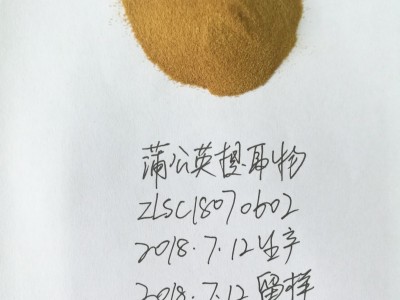 蒲公英提取物
ZLSC18070602
2018.7.12生产
2018.7.12留样